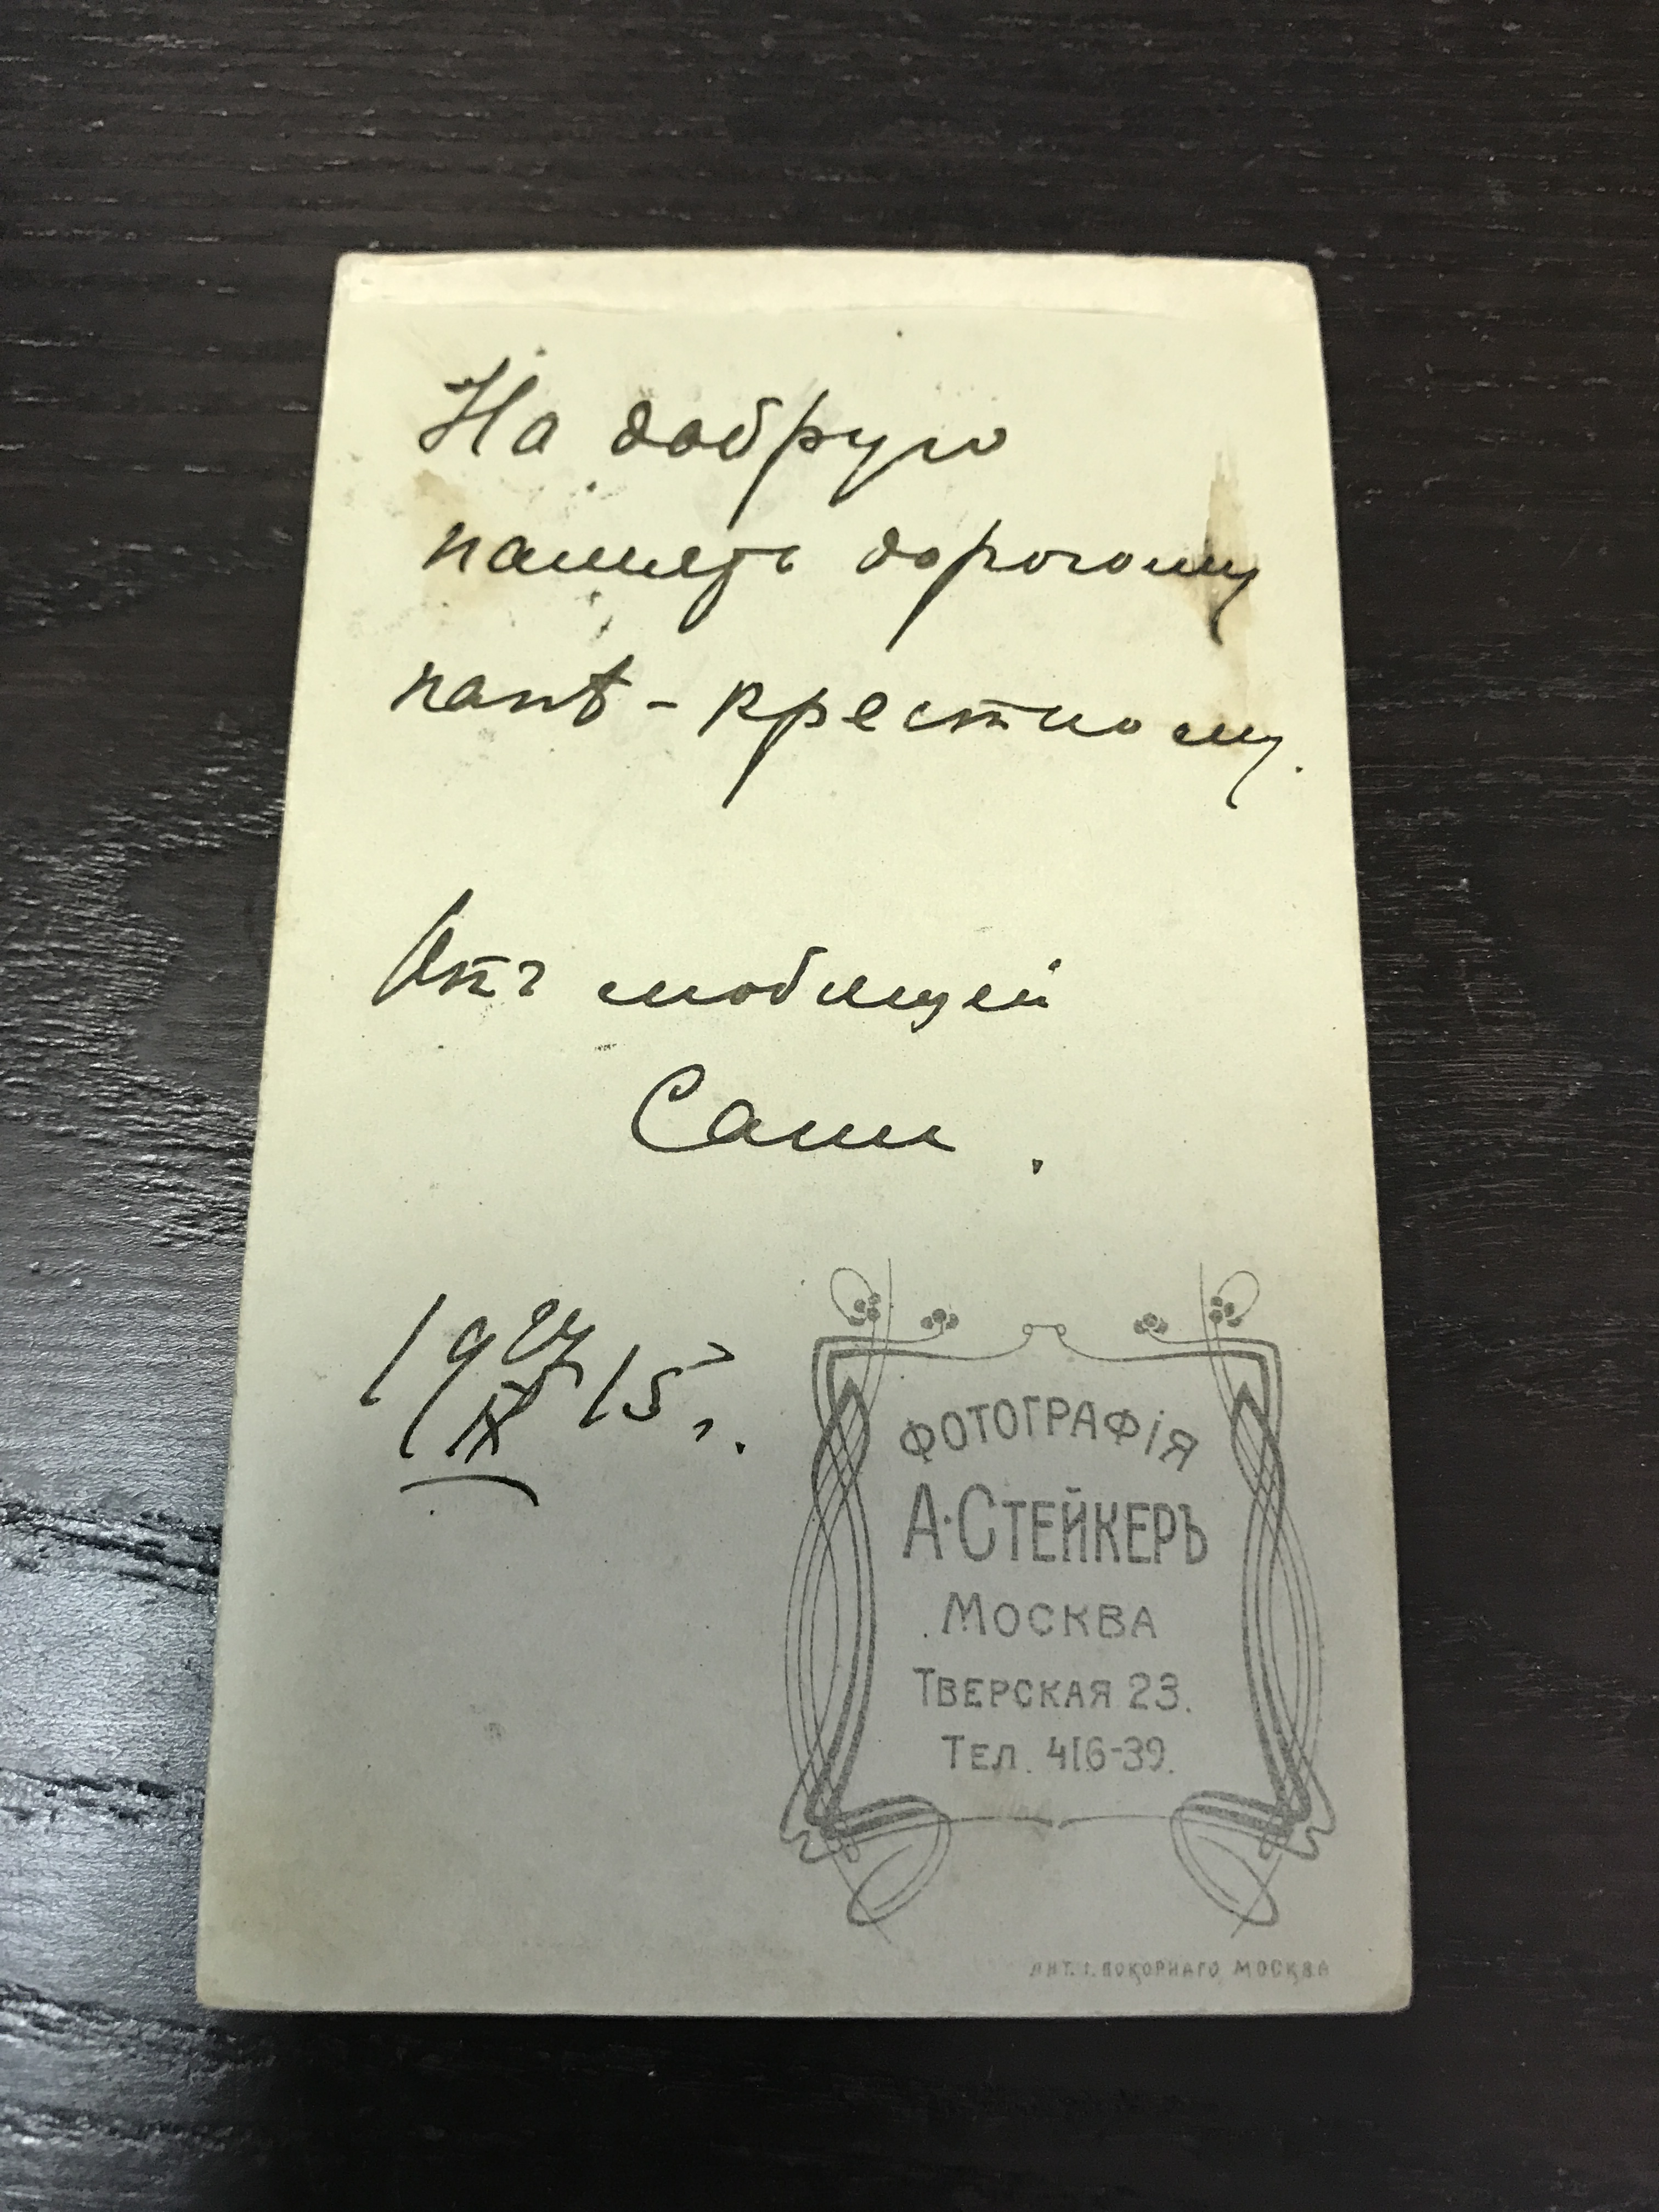 На добрую
память дорогому
папѣ - крестному.
Отъ любящей
Саши.
19 24/IX 15 г.
ФОТОГРАФІЯ
А. СТЕЙКЕРЪ
МОСКВА
ТВЕРСКАЯ 23.
ТЕЛ. 416-39.
ЛИТ. І. ПОКОРНАГО, МОСКВА